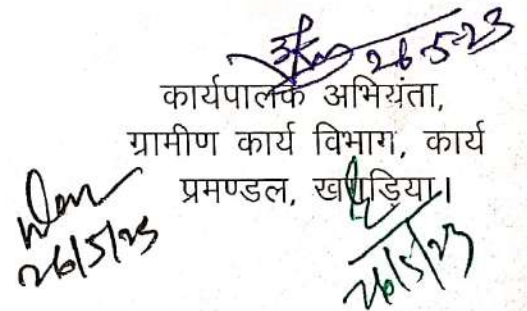 26-5-23
कार्यपालक अभियंता,
ग्रामीण कार्य विभाग, कार्य
प्रमण्डल, खगड़िया।
26/5/23
26/5/23